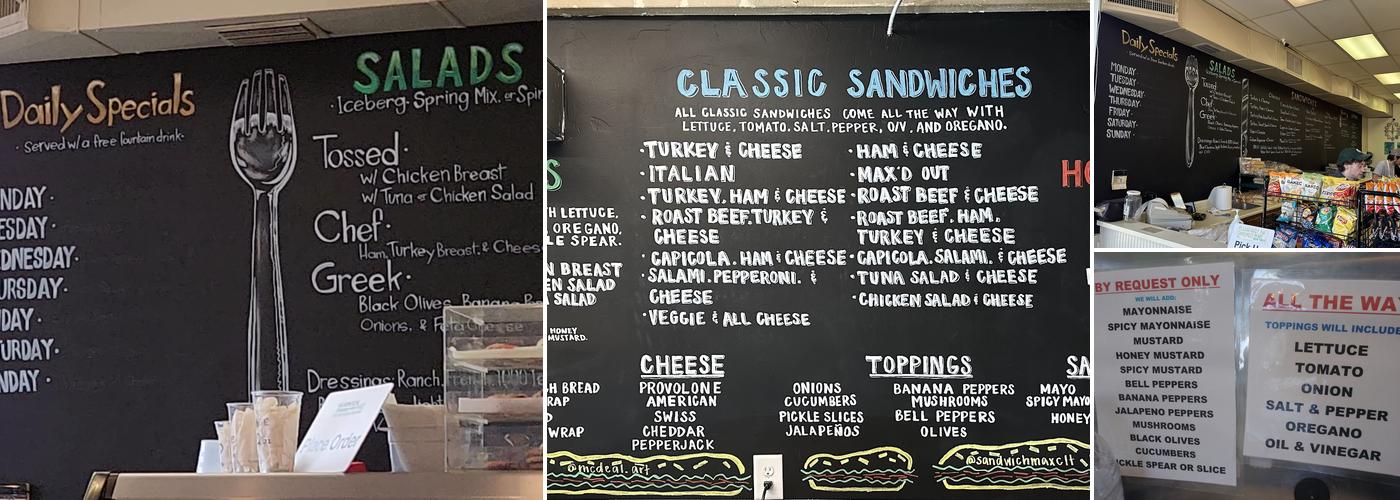 Daily Specials
· Served w/a free fountain drink·
NDAY ·
ESDAY ·
DNESDAY·
URSDAY·
DAY ·
TURDAY·
NDAY ·
SALADS
·Iceberg, Spring Mix, or Spin
Tossed·
w/ Chicken Breast
w/ Tuna or Chicken Salad
Chef·
Ham, Turkey Breast, & Chees
Greek·
Black Olives, Banana Pe
Onions, & Feta Cheese
Dressings: Ranch,
Place Order
CLASSIC SANDWICHES
ALL CLASSIC SANDWICHES COME ALL THE WAY WITH
LETTUCE, TOMATO, SALT, PEPPER, O/V, AND OREGANO.
·TURKEY & CHEESE
·ITALIAN
·TURKEY, HAM & CHEESE
·ROAST BEEF, TURKEY &
CHEESE
·CAPICOLA, HAM & CHEESE
·SALAMI, PEPPERONI, &
CHEESE
·VEGGIE & ALL CHEESE
·HAM & CHEESE
·MAX'D OUT
·ROAST BEEF & CHEESE
·ROAST BEEF, HAM,
TURKEY & CHEESE
·CAPICOLA, SALAMI, & CHEESE
·TUNA SALAD & CHEESE
·CHICKEN SALAD & CHEESE
S
H LETTUCE,
OREGANO,
LE SPEAR.
N BREAST
EN SALAD
SALAD
HONEY
MUSTARD.
H BREAD
RAP
D
WRAP
HO
CHEESE
PROVOLONE
AMERICAN
SWISS
CHEDDAR
PEPPERJACK
TOPPINGS
ONIONS
CUCUMBERS
PICKLE SLICES
JALAPEÑOS
BANANA PEPPERS
MUSHROOMS
BELL PEPPERS
OLIVES
SA
MAYO
SPICY MAYO
HONEY
@mcdeal.art
@sandwichmaxclt
Daily Specials
MONDAY
TUESDAY
WEDNESDAY
THURSDAY
FRIDAY
SATURDAY
SUNDAY
SALADS
Tossed
Chef
Greek
SANDWICHES
Pick U
BY REQUEST ONLY
WE WILL ADD:
MAYONNAISE
SPICY MAYONNAISE
MUSTARD
HONEY MUSTARD
SPICY MUSTARD
BELL PEPPERS
BANANA PEPPERS
JALAPENO PEPPERS
MUSHROOMS
BLACK OLIVES
CUCUMBERS
ICKLE SPEAR OR SLICE
ALL THE WA
TOPPINGS WILL INCLUDE
LETTUCE
TOMATO
ONION
SALT & PEPPER
OREGANO
OIL & VINEGAR